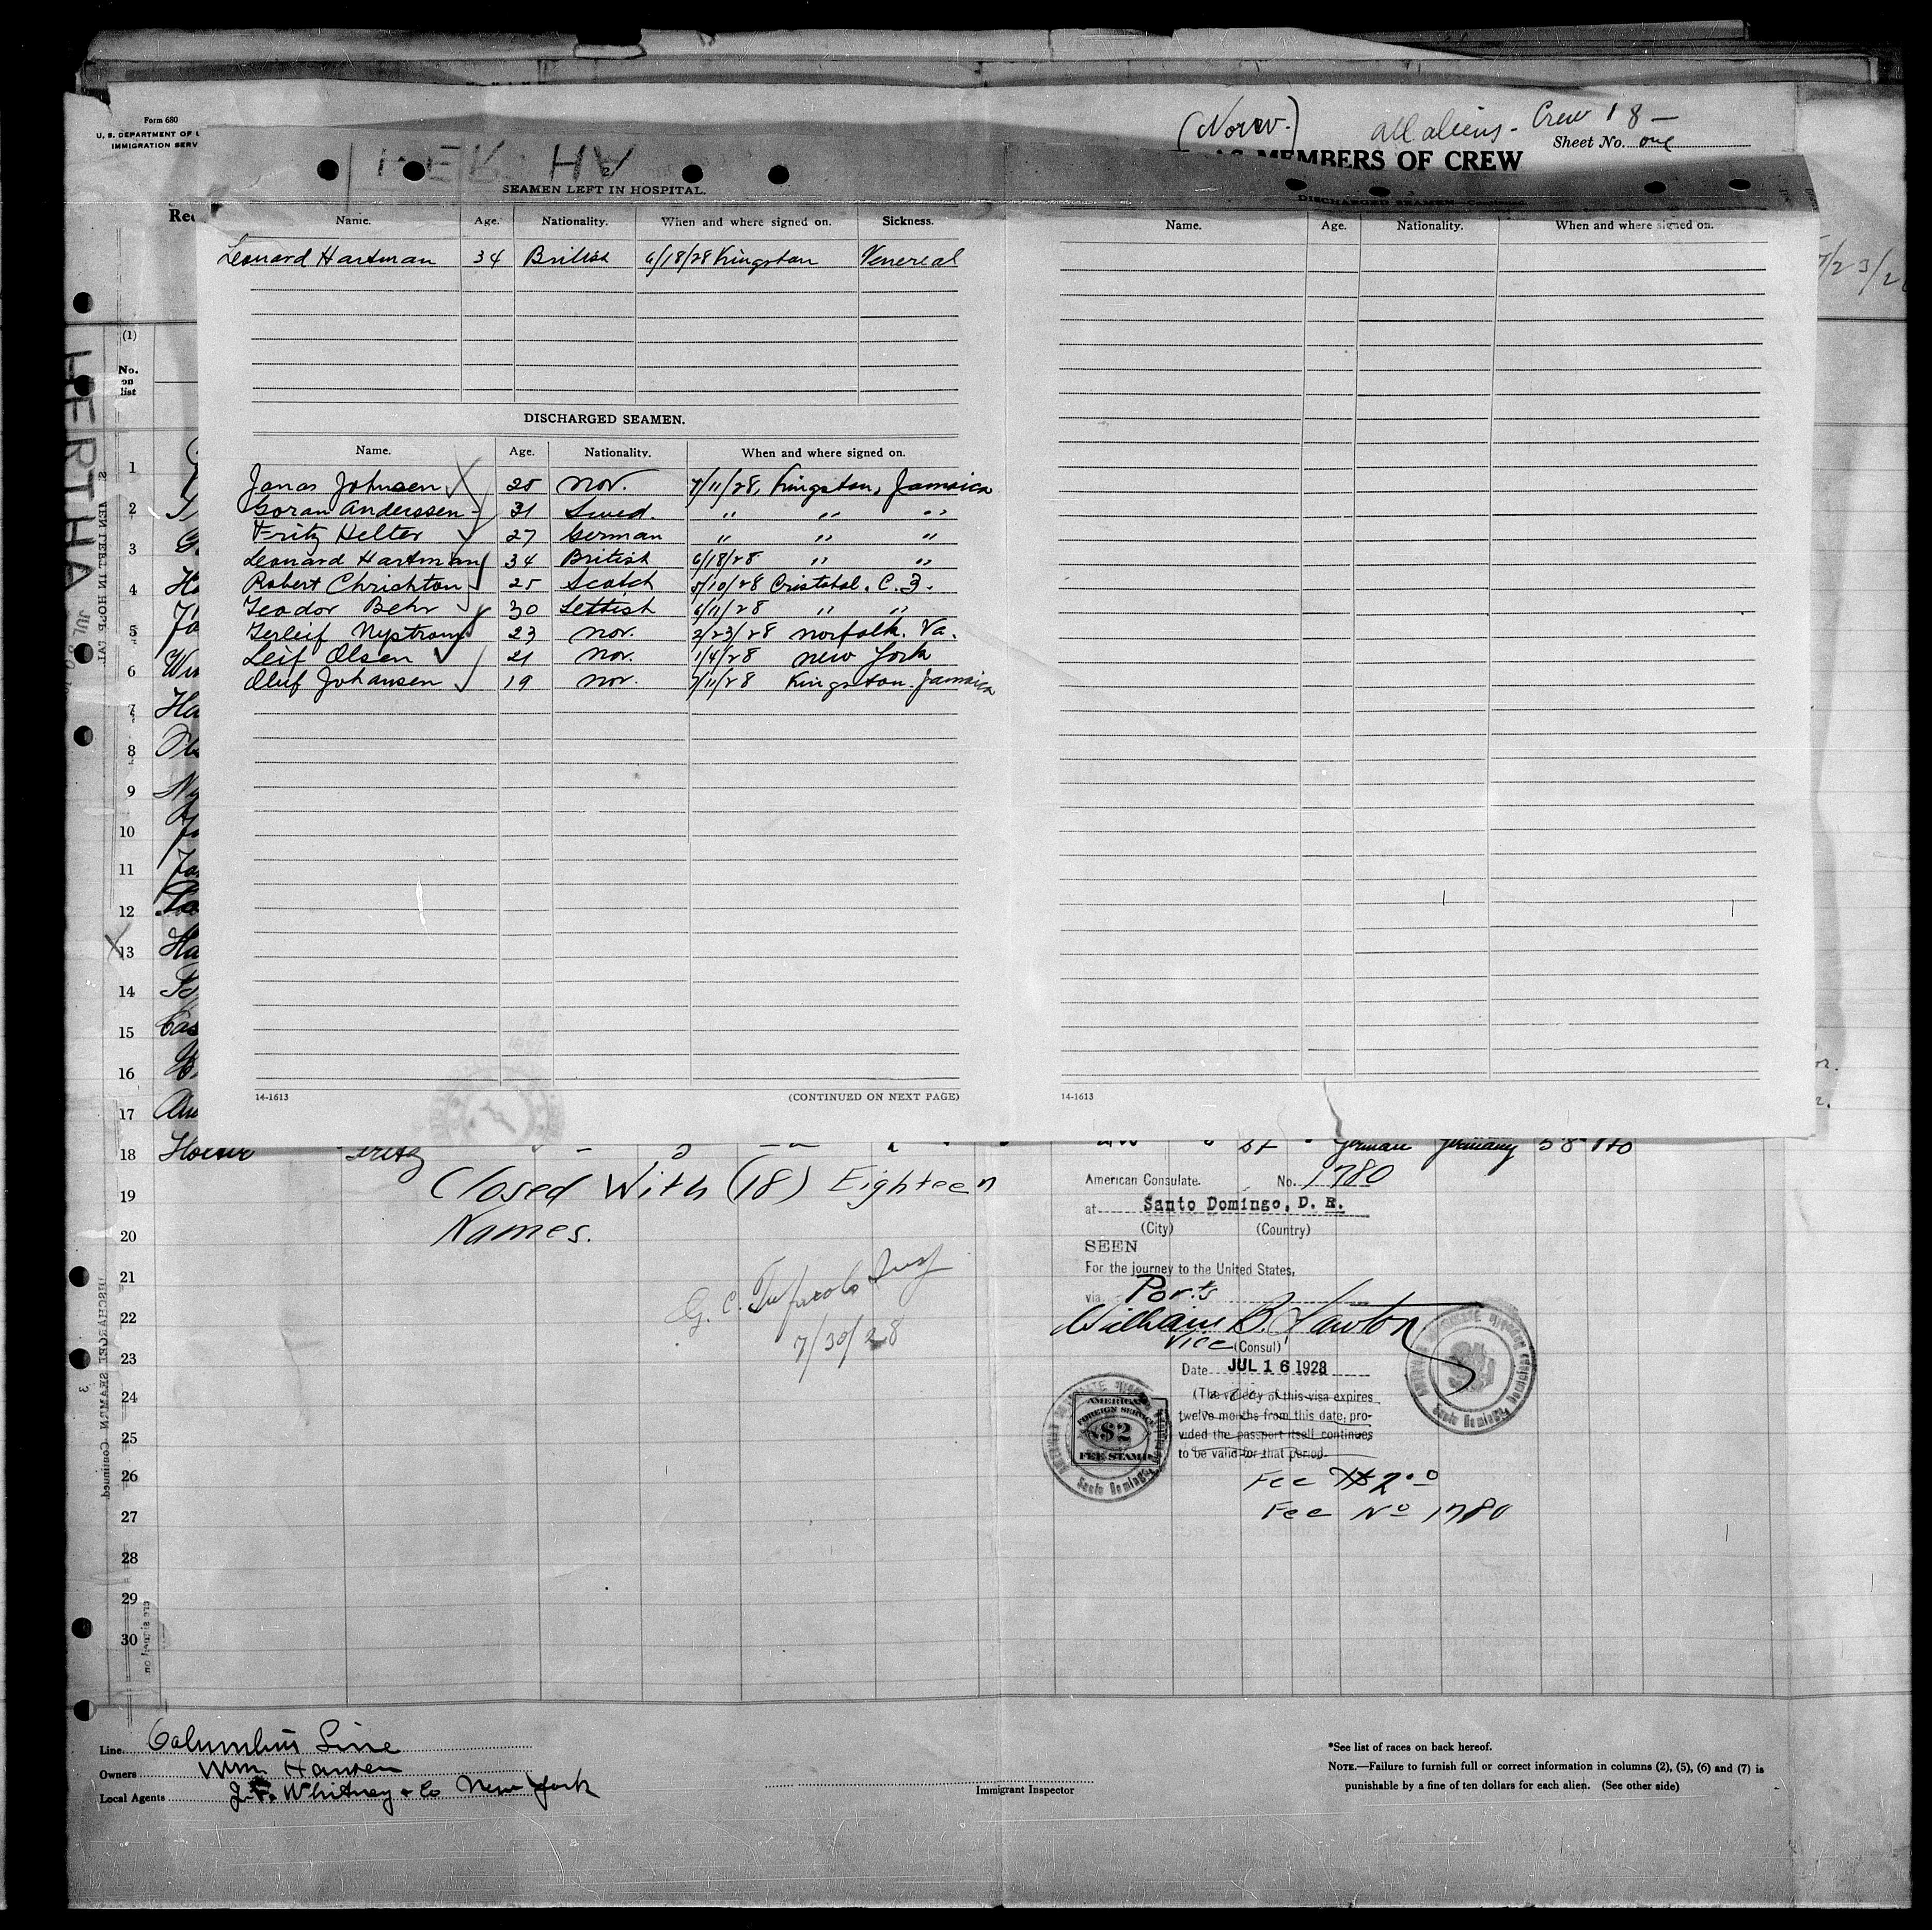 Form 680
U. S. DEPARTMENT OF L
IMMIGRATION SERV
(Norw.) all aliens - Crew 18 -
Sheet No. one
MEMBERS OF CREW
HERTHA
2
SEAMEN LEFT IN HOSPITAL.
Name. Age. Nationality. When and where signed on. Sickness.
Leonard Hartman 34 British 6/18/28 Kingston Venereal
DISCHARGED SEAMEN.
Name. Age. Nationality. When and where signed on.
Jonas Johnsen 25 Nor. 7/11/28, Kingston, Jamaica
Goran Anderssen 31 Swed. " " "
Fritz Helter 27 German " " "
Leonard Hartman 34 British 6/18/28 " "
Robert Chrichton 25 Scotch 5/10/28 Cristobal. C. Z.
Teodor Behr 30 Lettish 6/11/28 " "
Terleif Nystrom 23 Nor. 2/23/28 Norfolk. Va.
Leif Olsen 21 Nor. 1/4/28 New York
Oluf Johansen 19 Nor. 7/11/28 Kingston. Jamaica
14-1613 (CONTINUED ON NEXT PAGE)
3
DISCHARGED SEAMEN—Continued
Name. Age. Nationality. When and where signed on.
14-1613
(1)
No.
on
list
1
2
3
4
5
6
7
8
9
10
11
12
13
14
15
16
17
18 Fritz German Germany
19 Closed With (18) Eighteen
20 Names.
21
22
23
24
25
26
27
28
29
30
7/30/28
American Consulate. No. 1780
at Santo Domingo, D. R.
(City) (Country)
SEEN
For the journey to the United States,
via Ports
William B. Lawton
Vice (Consul)
Date JUL 16 1928
(The validity of this visa expires
twelve months from this date, pro-
vided the passport itself continues
to be valid for that period.
AMERICAN
FOREIGN SERVICE
$2
FEE STAMP
Santo Domingo
Santo Domingo
Fee $2.00
Fee No 1780
Line Columbus Line
Owners Wm Hansen
Local Agents J. F. Whitney & Co New York
Immigrant Inspector
*See list of races on back hereof.
NOTE.—Failure to furnish full or correct information in columns (2), (5), (6) and (7) is
punishable by a fine of ten dollars for each alien. (See other side)